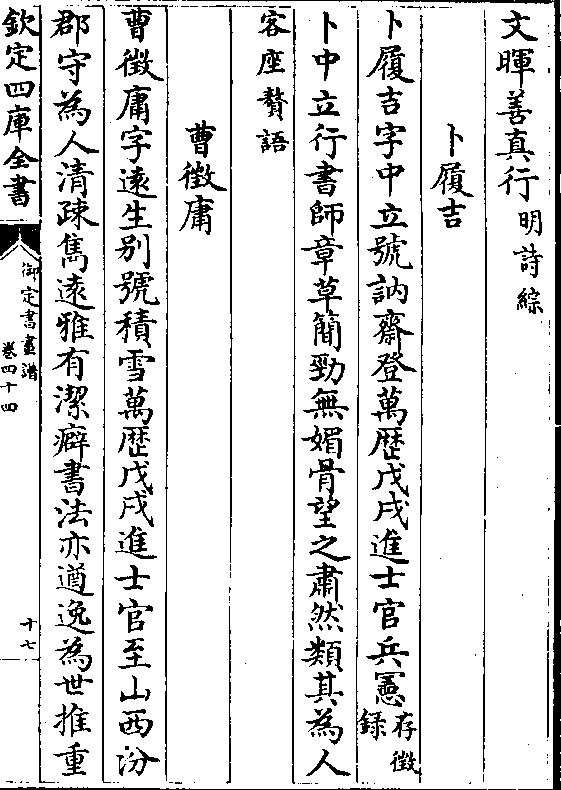 文暉善真行明詩綜
卜履吉
卜履吉字中立號訥齋登萬厯戊戌進士官兵憲存徴録
卜中立行書師章草簡勁無媚骨望之肅然類其為人
客座贅語
曹徴庸
曹徴庸字逺生别號積雪萬厯戊戌進士官至山西汾
郡守為人清疎雋逺雅有潔癖書法亦遒逸為世推重
欽定四庫全書
御定書畫譜
卷四十四
十七